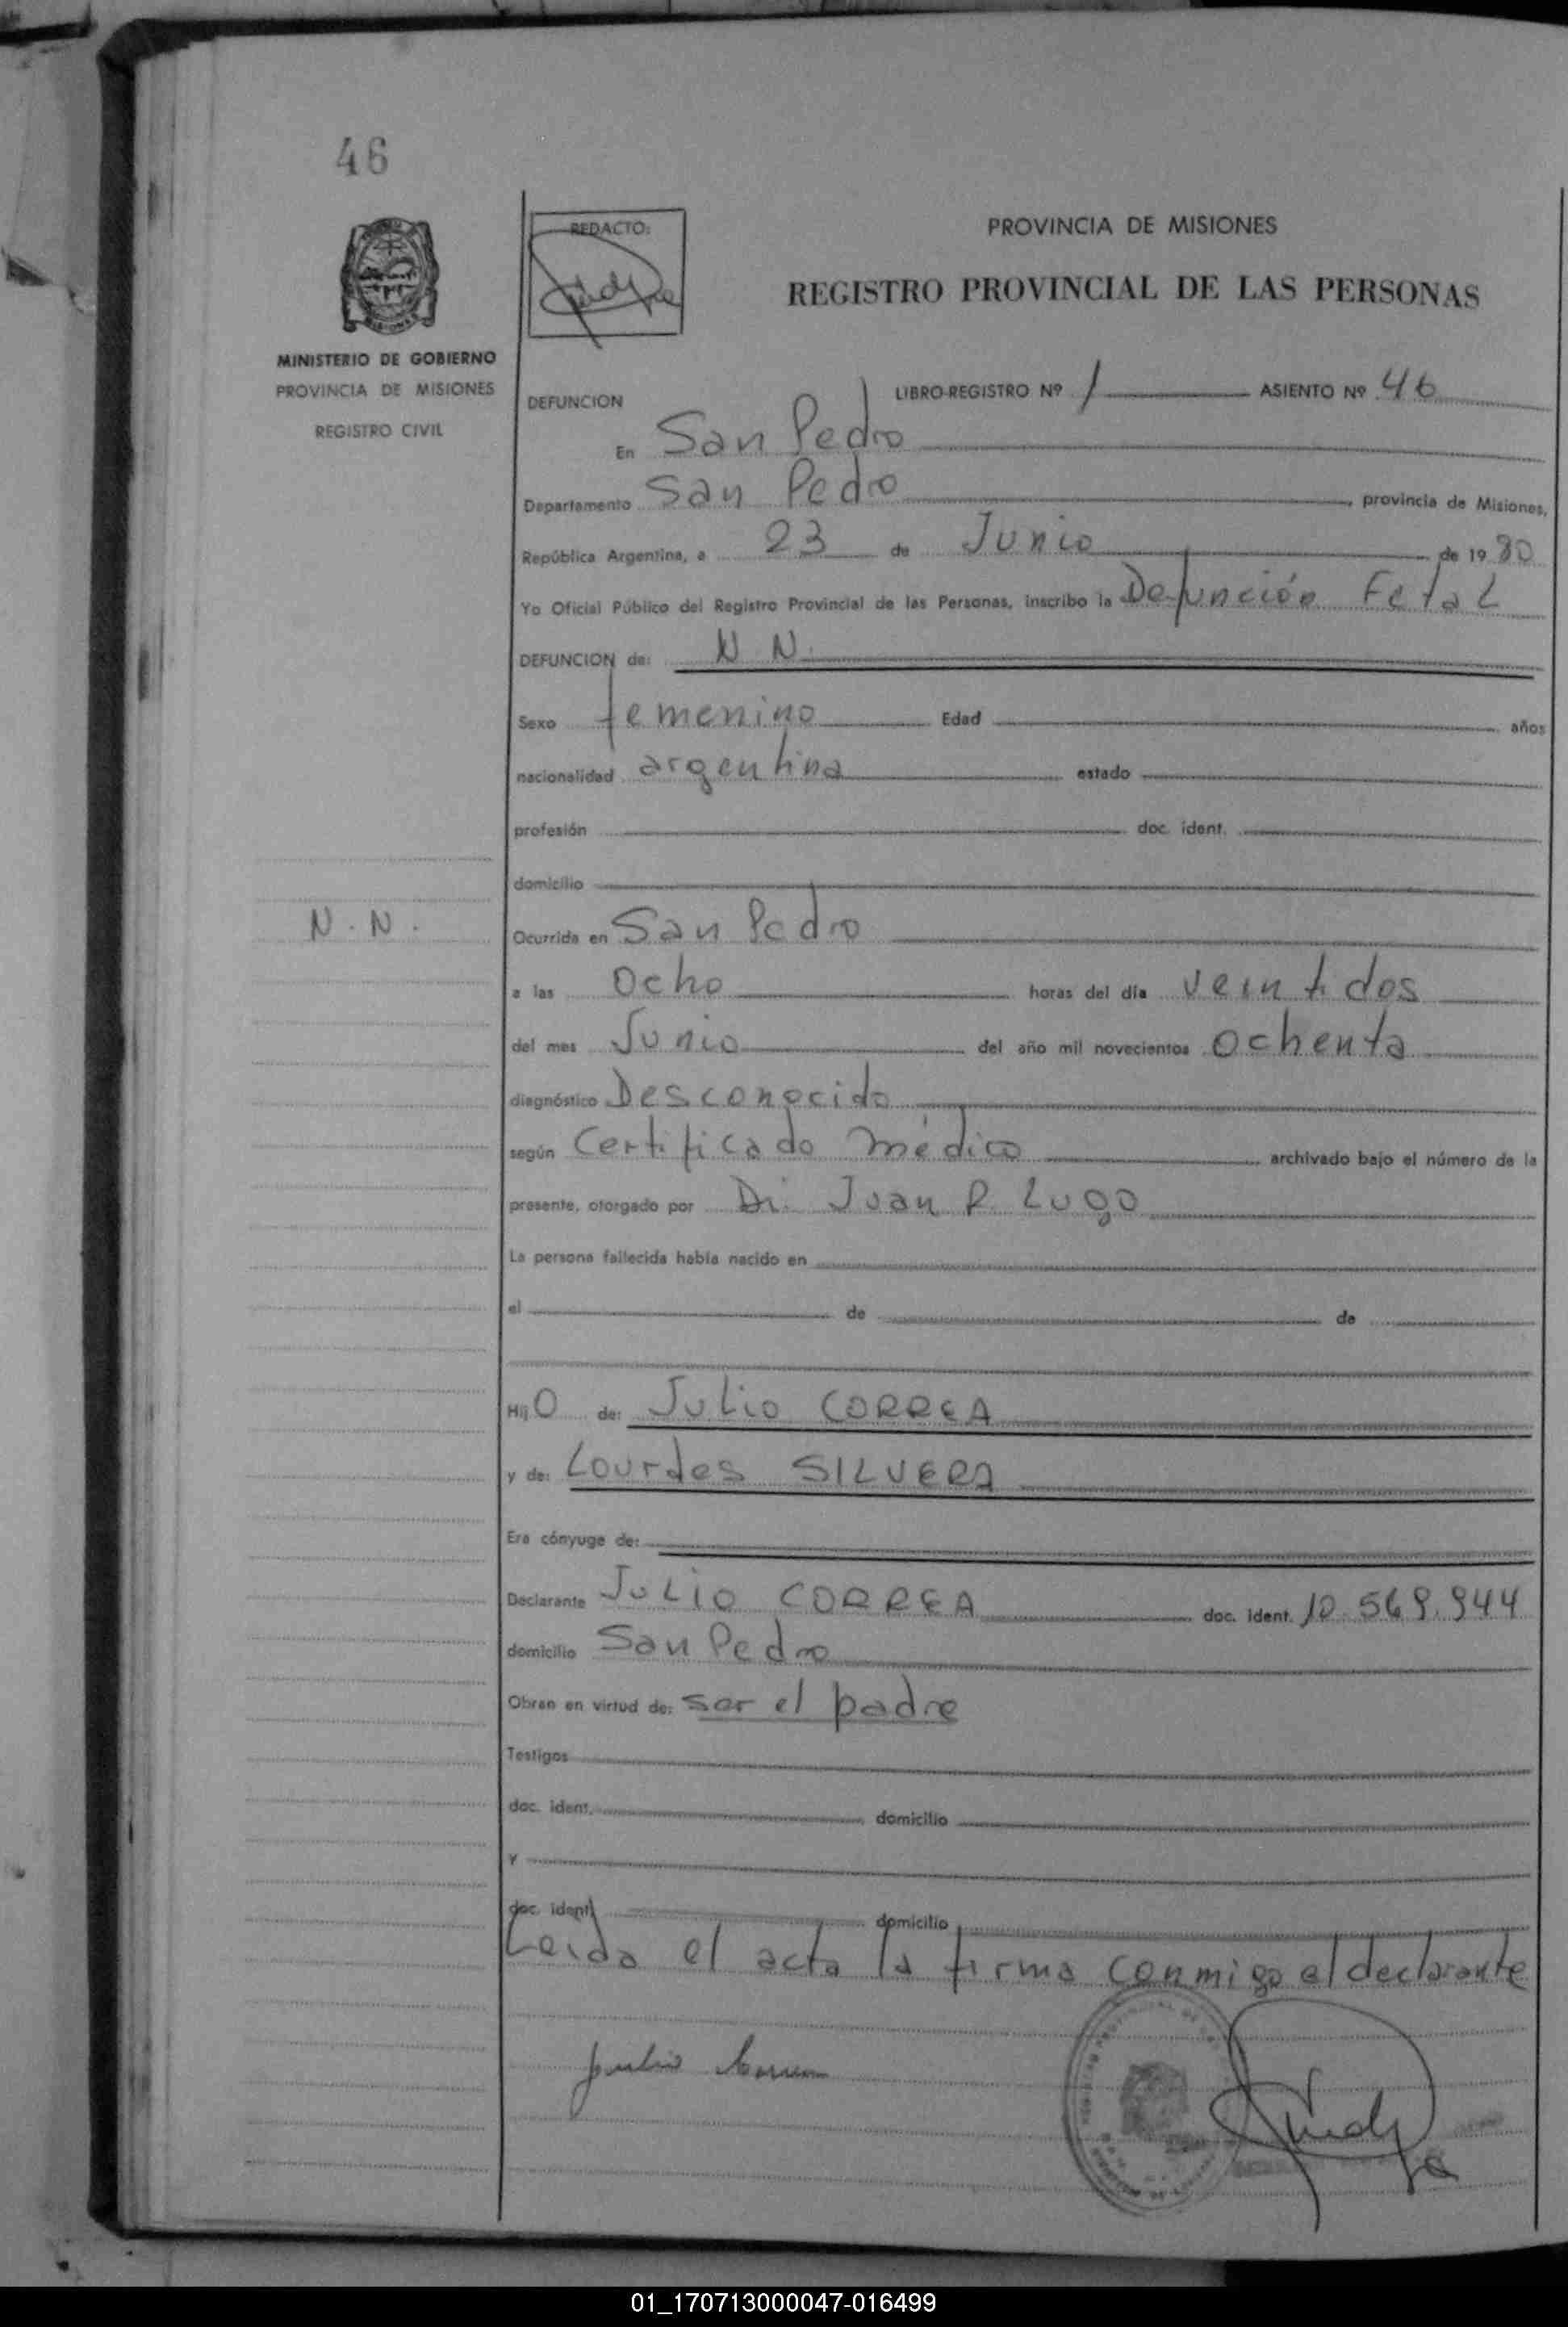 46
REDACTO:
PROVINCIA DE MISIONES
REGISTRO PROVINCIAL DE LAS PERSONAS
MINISTERIO DE GOBIERNO
PROVINCIA DE MISIONES
REGISTRO CIVIL
DEFUNCION LIBRO-REGISTRO Nº 1 ASIENTO Nº 46
En San Pedro
Departamento San Pedro provincia de Misiones,
República Argentina, a 23 de Junio de 1980
Yo Oficial Público del Registro Provincial de las Personas, inscribo la Defunción Fetal
DEFUNCION de: N N.
Sexo femenino Edad años
nacionalidad argentina estado
profesión doc. ident.
domicilio
N. N.
Ocurrida en San Pedro
a las Ocho horas del día veintidos
del mes Junio del año mil novecientos ochenta
diagnóstico Desconocido
según Certificado médico archivado bajo el número de la
presente, otorgado por Dr. Juan R. Lugo
La persona fallecida había nacido en
el de de
HijO de: Julio CORREA
y de: Lourdes SILVERA
Era cónyuge de:
Declarante JULIO CORREA doc. ident. 10.569.944
domicilio San Pedro
Obran en virtud de: ser el padre
Testigos
doc. ident. domicilio
y
doc. ident. domicilio
Leida el acta la firma conmigo el declarante
Julio Correa
01_170713000047-016499